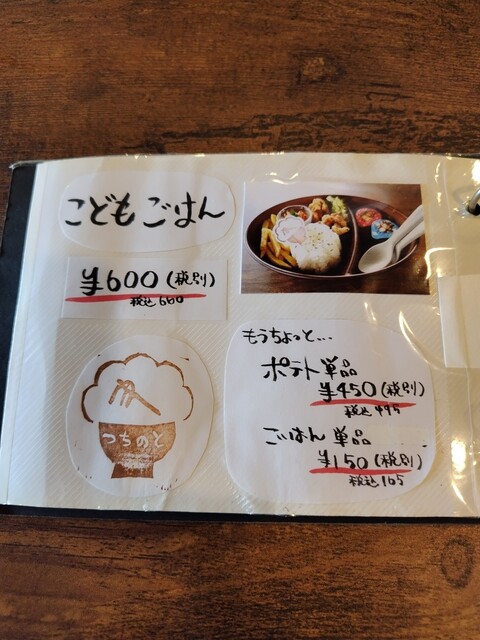 こどもごはん
¥600(税別)
税込660
つちのと
もうちょっと...
ポテト単品
¥450(税別)
税込495
ごはん単品
¥150(税別)
税込165